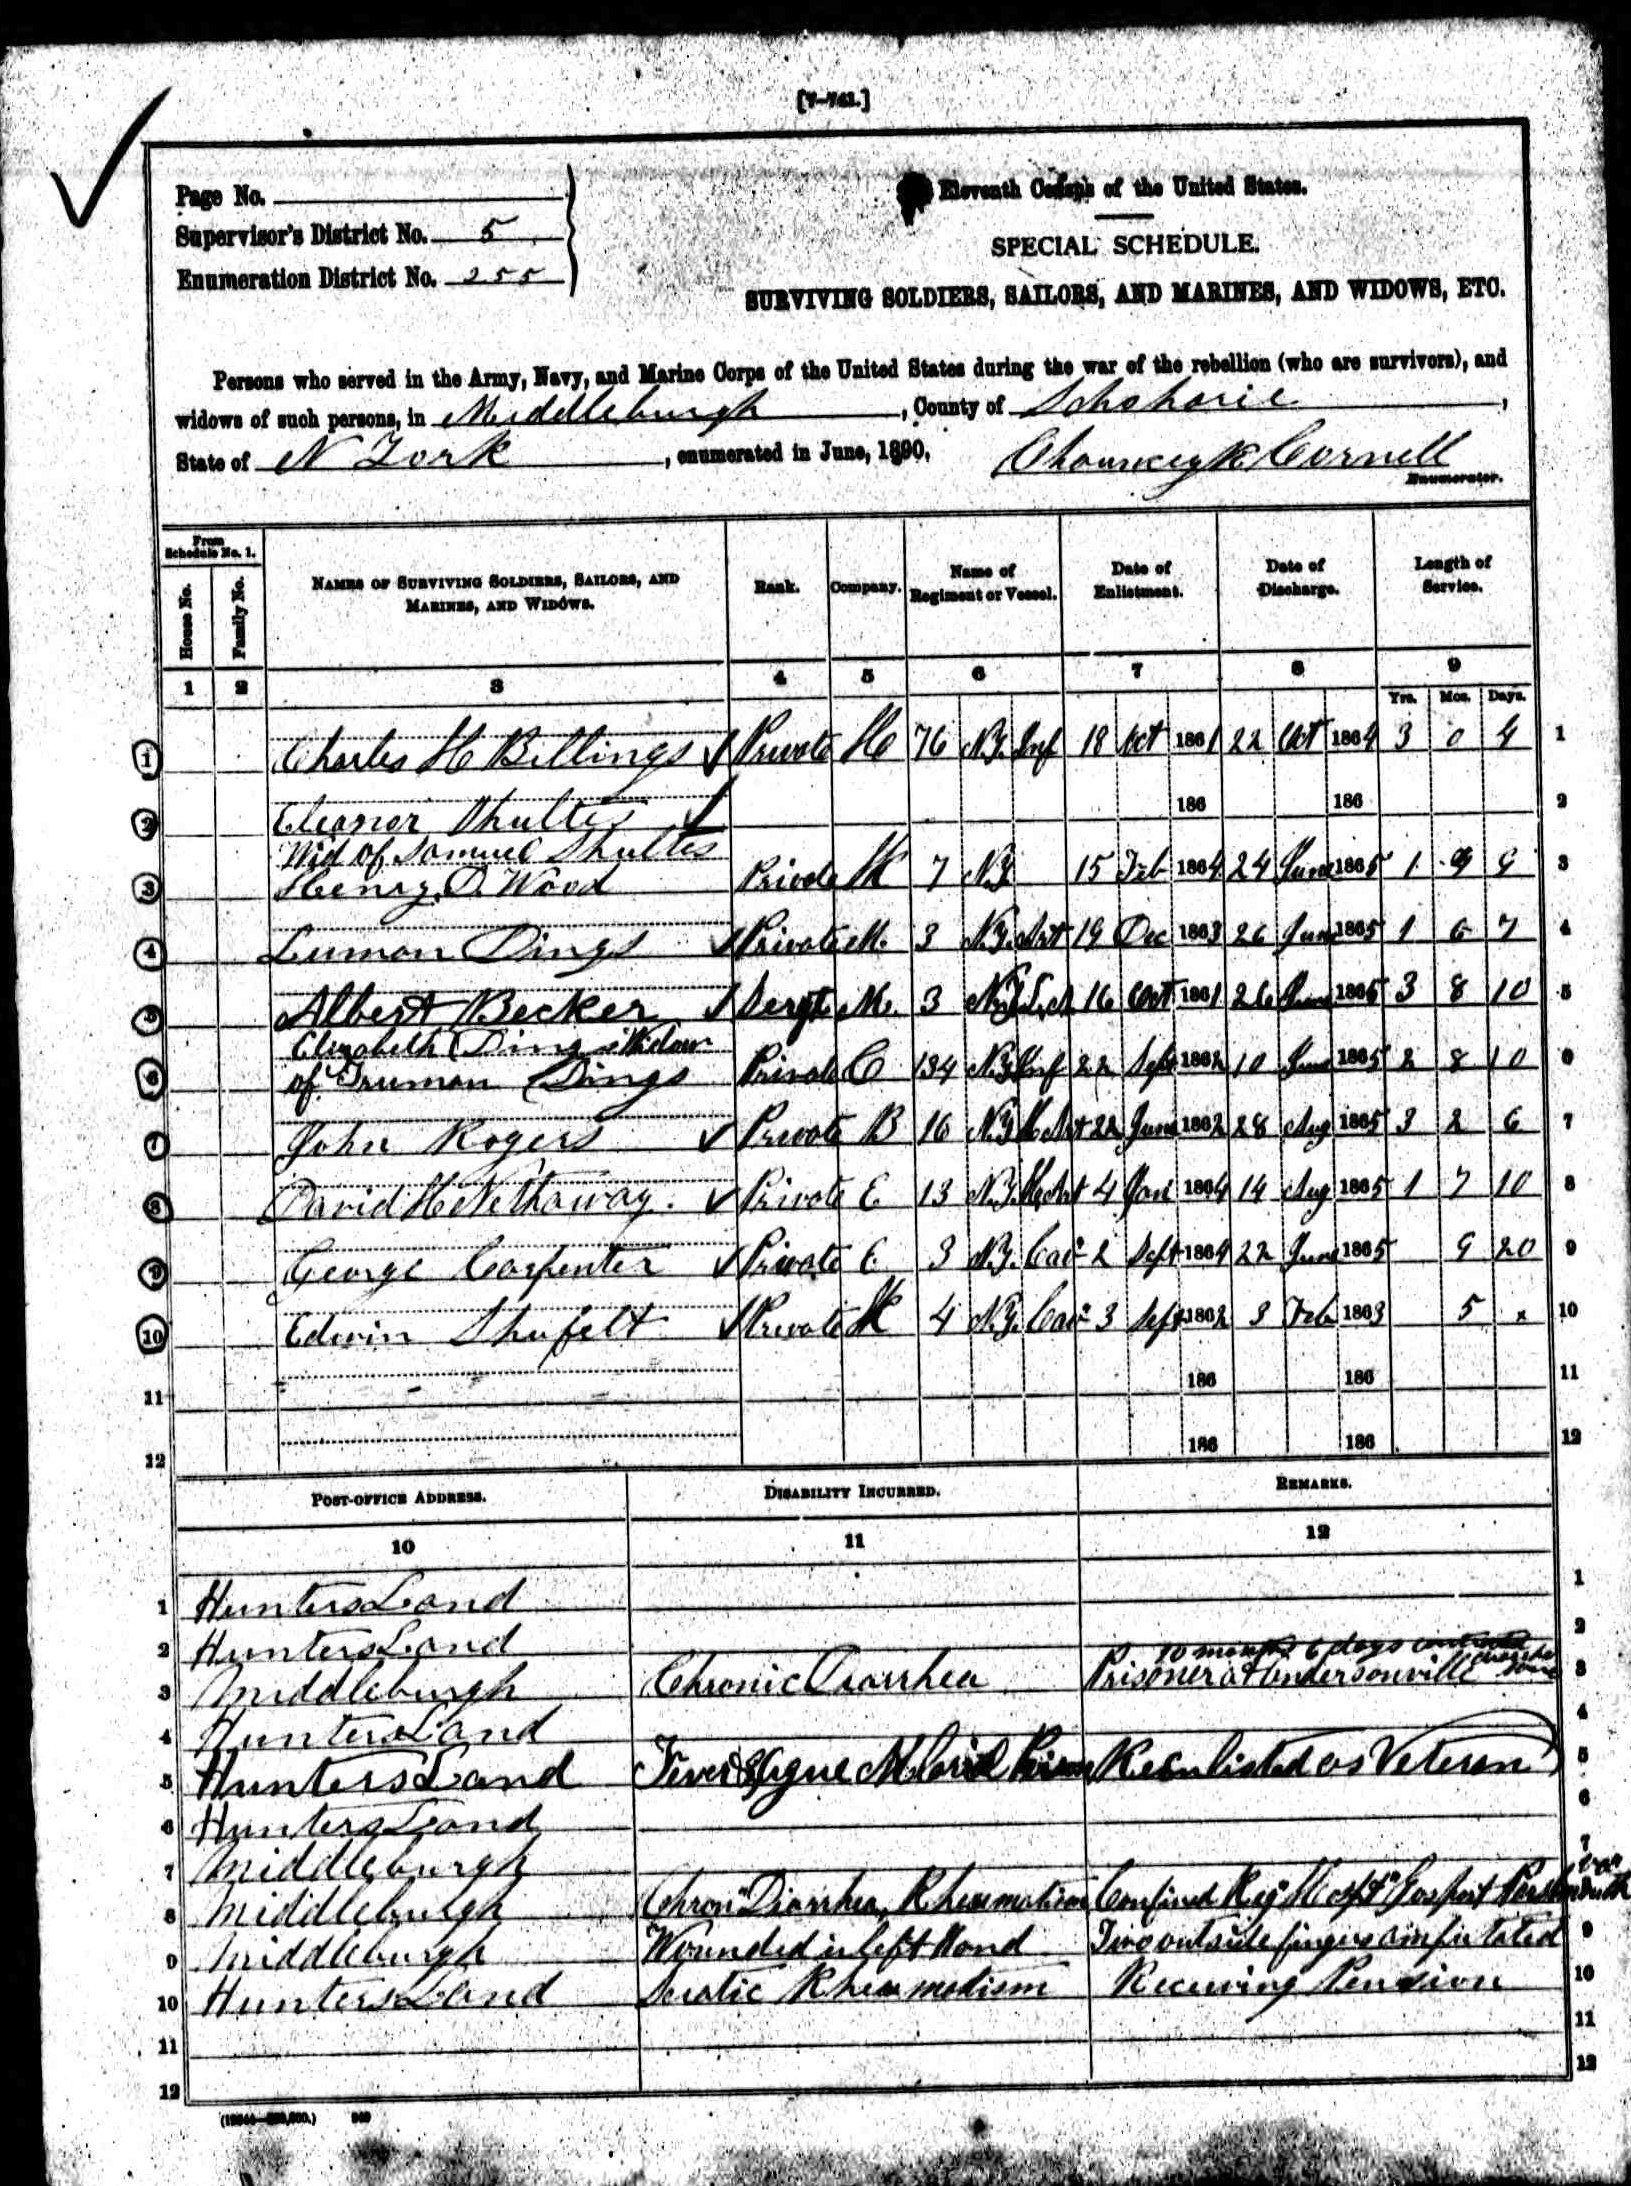 [7-761.]
Page No.
Supervisor's District No. 5
Enumeration District No. 255
Eleventh Census of the United States.
SPECIAL SCHEDULE.
SURVIVING SOLDIERS, SAILORS, AND MARINES, AND WIDOWS, ETC.
Persons who served in the Army, Navy, and Marine Corps of the United States during the war of the rebellion (who are survivors), and
widows of such persons, in Middleburgh, County of Schoharie,
State of N York, enumerated in June, 1890. Chauncey K Cornell
Enumerator.
From Schedule No. 1.
House No. Family No. NAMES OF SURVIVING SOLDIERS, SAILORS, AND MARINES, AND WIDOWS. Rank. Company. Name of Regiment or Vessel. Date of Enlistment. Date of Discharge. Length of Service.
1 2 3 4 5 6 7 8 9
Yrs. Mos. Days.
1 Charles H Billings Private H 76 N.Y. Inf 18 Oct 1861 22 Oct 1864 3 0 4 1
2 Eleanor Shultes 186 186 2
Wid of Samuel Shultes
3 Henry D. Wood Private 7 N.Y. 15 Feb 1864 24 June 1865 1 9 3
4 Luman Dings Private M. 3 N.Y. Art 19 Dec 1863 26 June 1865 1 6 7 4
5 Albert Becker Sergt M. 3 N.Y. L.A 16 Oct 1861 26 June 1865 3 8 10 5
Elizabeth Dings Widow
6 of Truman Dings Private C 134 N.Y. Inf 22 Sept 1862 10 June 1865 2 8 10 6
7 John Rogers Private B 16 N.Y. H Art 22 June 1862 28 Aug 1865 3 2 6 7
8 David H Nethaway. Private E 13 N.Y. H Art 4 Jan 1864 14 Aug 1865 1 7 10 8
9 George Carpenter Private E 3 N.Y. Cav 2 Sept 1864 22 June 1865 9 20 9
10 Edwin Shufelt Private 4 N.Y. Cav 3 Sept 1862 3 Feb 1863 5 x 10
11 186 186 11
12 186 186 12
POST-OFFICE ADDRESS. DISABILITY INCURRED. REMARKS.
10 11 12
1 HuntersLand 1
2 HuntersLand 2
10 months 6 days
3 Middleburgh Chronic Diarrhea Prisoner at Andersonville 3
4 HuntersLand 4
5 HuntersLand Fever & Ague Reenlisted as Veteran 5
6 HuntersLand 6
7 Middleburgh 7
8 Middleburgh Chron Diarrhea, Rheumatism Confined Reg Hospt Gosport Va
9 Middleburgh Wounded in left Hand Two outside fingers amputated 9
10 HuntersLand Sciatic Rheumatism Receiving Pension 10
11 11
12 12